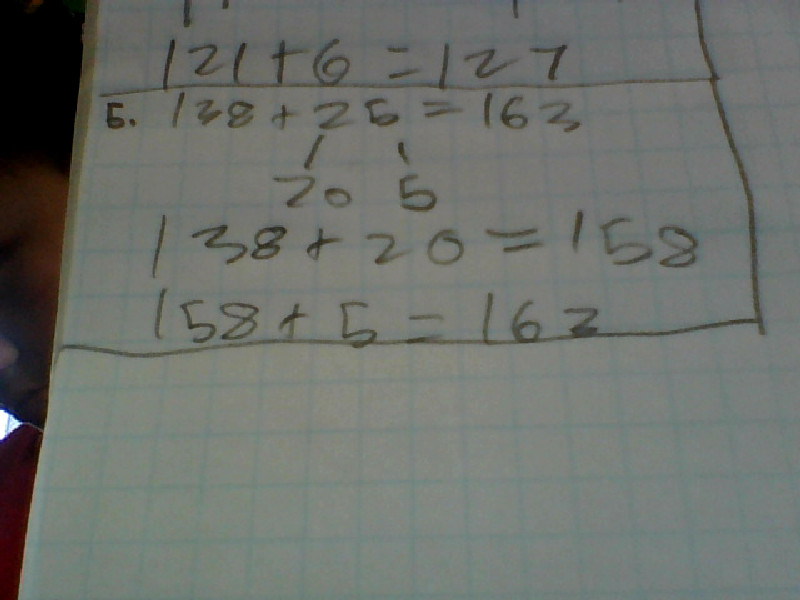 121+6=127
5. 138+25=163
20 5
138+20=158
158+5=163